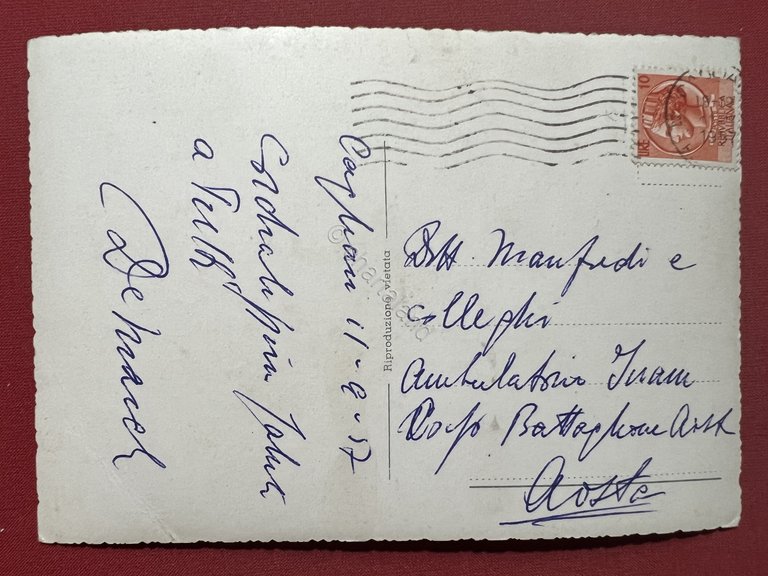 Cagliari 11-9-57
Cordialissimi saluti
a tutti
De March
Riproduzione vietata
Dott Manfredi e
colleghi
Ambulatorio Inam
Corso Battaglione Aosta
Aosta